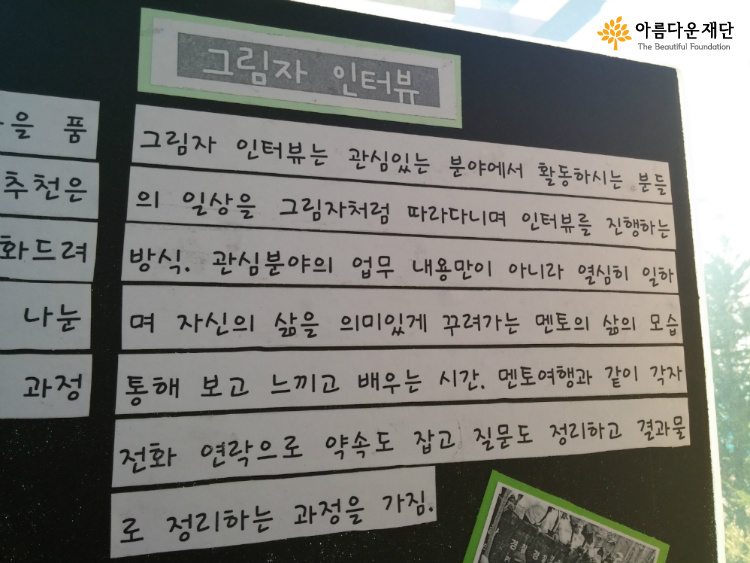 아름다운재단
The Beautiful Foundation
그림자 인터뷰
을 품
추천은
화드려
나눈
과정
그림자 인터뷰는 관심있는 분야에서 활동하시는 분들
의 일상을 그림자처럼 따라다니며 인터뷰를 진행하는
방식. 관심분야의 업무 내용만이 아니라 열심히 일하
며 자신의 삶을 의미있게 꾸려가는 멘토의 삶의 모습
통해 보고 느끼고 배우는 시간. 멘토여행과 같이 각자
전화 연락으로 약속도 잡고 질문도 정리하고 결과물
로 정리하는 과정을 가짐.